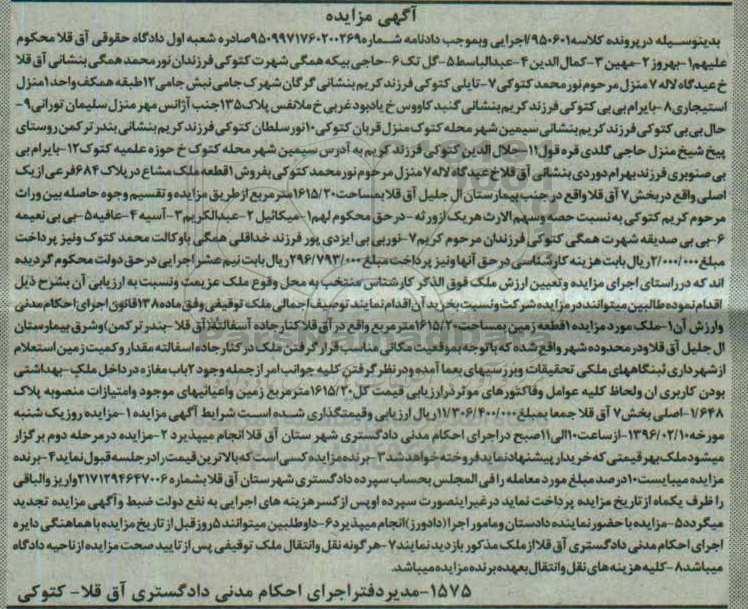 آگهی مزایده
بدینوسیله در پرونده کلاسه ۹۵۰۶۰۱/اجرایی وبموجب دادنامه شماره ۹۵۰۹۹۷۱۷۶۰۲۰۰۳۶۹ صادره شعبه اول دادگاه حقوقی آق قلا محکوم
علیهم ۱-بهروز ۲-مهین ۳-کمال الدین ۴-عبدالباسط ۵-گل تک ۶-حاجی بیکه همگی شهرت کتوکی فرزندان نورمحمد همگی بنشانی آق قلا
خ عیدگاه لاله ۷ منزل مرحوم نورمحمد کتوکی ۷-تایلی کتوکی فرزند کریم بنشانی گرگان شهرک جامی نبش جامی ۱۲ طبقه همکف واحد ۱ منزل
استیجاری ۸-بایرام بی بی کتوکی فرزند کریم بنشانی گنبد کاووس خ یادبود غربی خ ملانفس پلاک ۱۳۵ جنب آژانس مهر منزل سلیمان تورانی ۹-
حال بی بی کتوکی فرزند کریم بنشانی سیمین شهر محله کتوک منزل قربان کتوکی ۱۰-نورسلطان کتوکی فرزند کریم بنشانی بندر ترکمن روستای
پیخ شیخ منزل حاجی گلدی قره قول ۱۱-جلال الدین کتوکی فرزند کریم به آدرس سیمین شهر محله کتوک خ حوزه علمیه کتوک ۱۲-بایرام بی
بی صنوبری فرزند بهرام دوردی بنشانی آق قلا خ عیدگاه لاله ۷ منزل مرحوم نورمحمد کتوکی بفروش ۱ قطعه ملک مشاع در پلاک ۶۸۴ فرعی از یک
اصلی واقع در بخش ۷ آق قلا واقع در جنب بیمارستان ال جلیل آق قلا بمساحت ۱۶۱۵/۲۰ متر مربع از طریق مزایده و تقسیم وجوه حاصله بین وراث
مرحوم کریم کتوکی به نسبت حصه وسهم الارث هریک از ورثه - در حق محکوم لهم ۱-میکائیل ۲-عبدالکریم ۳-آسیه ۴-عافیه ۵-بی بی نعیمه
۶-بی بی صدیقه شهرت همگی کتوکی فرزندان مرحوم کریم ۷-نوربی بی ایزدی پور فرزند خداقلی همگی باوکالت محمد کتوک ونیز پرداخت
مبلغ ۲/۰۰۰/۰۰۰ ریال بابت هزینه کارشناسی در حق آنها ونیز پرداخت مبلغ ۲۹۶/۷۹۳/۰۰۰ ریال بابت نیم عشر اجرایی در حق دولت محکوم گردیده
اند که در راستای اجرای مزایده وتعیین ارزش ملک فوق الذکر کارشناس منتخب به محل وقوع ملک عزیمت ونسبت به ارزیابی آن بشرح ذیل
اقدام نموده طالبین میتوانند در مزایده شرکت ونسبت بخرید آن اقدام نمایند توصیف اجمالی ملک توقیفی وفق ماده ۱۳۸ قانون اجرای احکام مدنی
وارزش آن ۱-ملک مورد مزایده ۱ قطعه زمین بمساحت ۱۶۱۵/۲۰ متر مربع واقع در آق قلا کنار جاده آسفالته (آق قلا-بندر ترکمن) وشرق بیمارستان
ال جلیل آق قلا ودر محدوده شهر واقع شده که باتوجه بموقعیت مکانی مناسب قرار گرفتن ملک در کنار جاده اسفالته مقدار وکمیت زمین استعلام
از شهرداری ئبنگاههای ملکی تحقیقات وبررسیهای بعما آمده ودر نظر گرفتن کلیه جوانب امر از جمله وجود ۲ باب مغازه در داخل ملک-بهداشتی
بودن کاربری ان ولحاظ کلیه عوامل وفاکتورهای موثر در ارزیابی قیمت کل ۱۶۱۵/۲۰ متر مربع زمین واعیانیهای موجود وامتیازات منصوبه پلاک
۱/۶۴۸-اصلی بخش ۷ آق قلا جمعا بمبلغ ۱۱/۳۰۶/۴۰۰/۰۰۰ ریال ارزیابی وقیمتگذاری شده است شرایط آگهی مزایده ۱-مزایده روز یک شنبه
مورخه ۱۳۹۶/۰۲/۱۰-از ساعت ۱۰ الی ۱۱ صبح در اجرای احکام مدنی دادگستری شهرستان آق قلا انجام میپذیرد ۲-مزایده در مرحله دوم برگزار
میشود ملک بهر قیمتی که خریدار پیشنهاد نماید فروخته خواهد شد ۳-برنده مزایده کسی است که بالاترین قیمت را در جلسه قبول نماید ۴-برنده
مزایده میبایست ۱۰ درصد مبلغ مورد معامله را فی المجلس بحساب سپرده دادگستری شهرستان آق قلا بشماره ۲۱۷۱۲۹۴۶۴۷۰۰۶ واریز والباقی
را ظرف یکماه از تاریخ مزایده پرداخت نماید در غیر اینصورت سپرده او پس از کسر هزینه های اجرایی به نفع دولت ضبط وآگهی مزایده تجدید
میگردد ۵-مزایده با حضور نماینده دادستان ومامور اجرا (دادورز) انجام میپذیرد ۶-داوطلبین میتوانند ۵ روز قبل از تاریخ مزایده با هماهنگی دایره
اجرای احکام مدنی دادگستری آق قلا از ملک مذکور بازدید نمایند ۷-هر گونه نقل وانتقال ملک توقیفی پس از تایید صحت مزایده از ناحیه دادگاه
میباشد ۸-کلیه هزینه های نقل وانتقال بعهده برنده مزایده میباشد.
۱۵۷۵-مدیر دفتر اجرای احکام مدنی دادگستری آق قلا- کتوکی